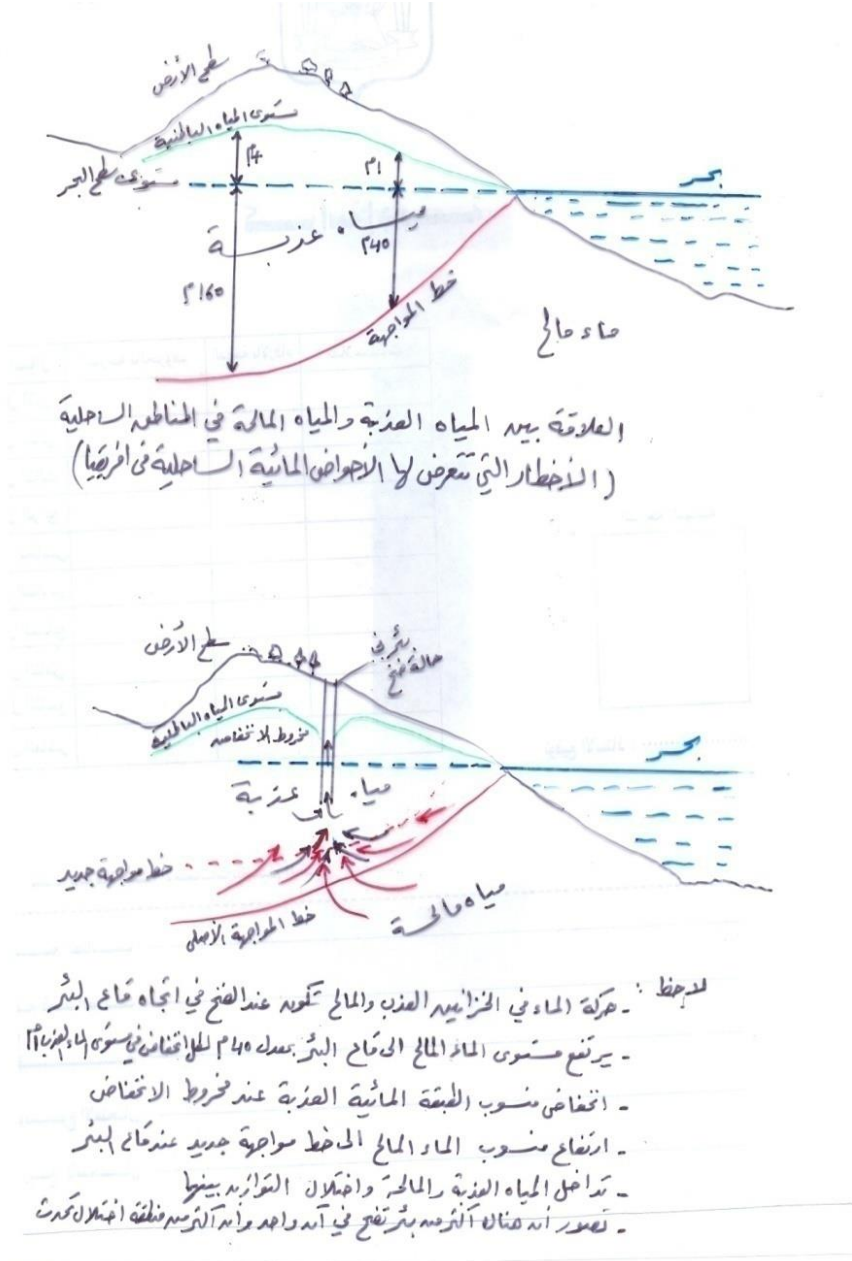 سطح الأرض
مستوى المياه الباطنية
4م
1م
مستوى سطح البحر
بحر
مياه عذبة
40م
160م
خط المواجهة
ماء مالح
العلاقة بين المياه العذبة والمياه المالحة في المناطق الساحلية
(الأخطار التي تتعرض لها الأحواض المائية الساحلية في افريقيا)
سطح الأرض
بئر في
حالة ضخ
مستوى المياه الباطنية
مخروط الانخفاض
بحر
مياه عذبة
خط مواجهة جديد
مياه مالحة
خط المواجهة الأصلي
لاحظ : - حركة الماء في الخزانين العذب والمالح تكون عند الضخ في اتجاه قاع البئر
- يرتفع مستوى الماء المالح الى قاع البئر بمعدل 40م لكل انخفاض في مستوى الماء العذب 1م
- انخفاض منسوب الطبقة المائية العذبة عند مخروط الانخفاض
- ارتفاع منسوب الماء المالح الى خط مواجهة جديد عند قاع البئر
- تداخل المياه العذبة والمالحة واختلال التوازن بينها
- تصور أن هناك أكثر من بئر تضخ في آن واحد وأن أكثر من منطقة اختلال تحدث